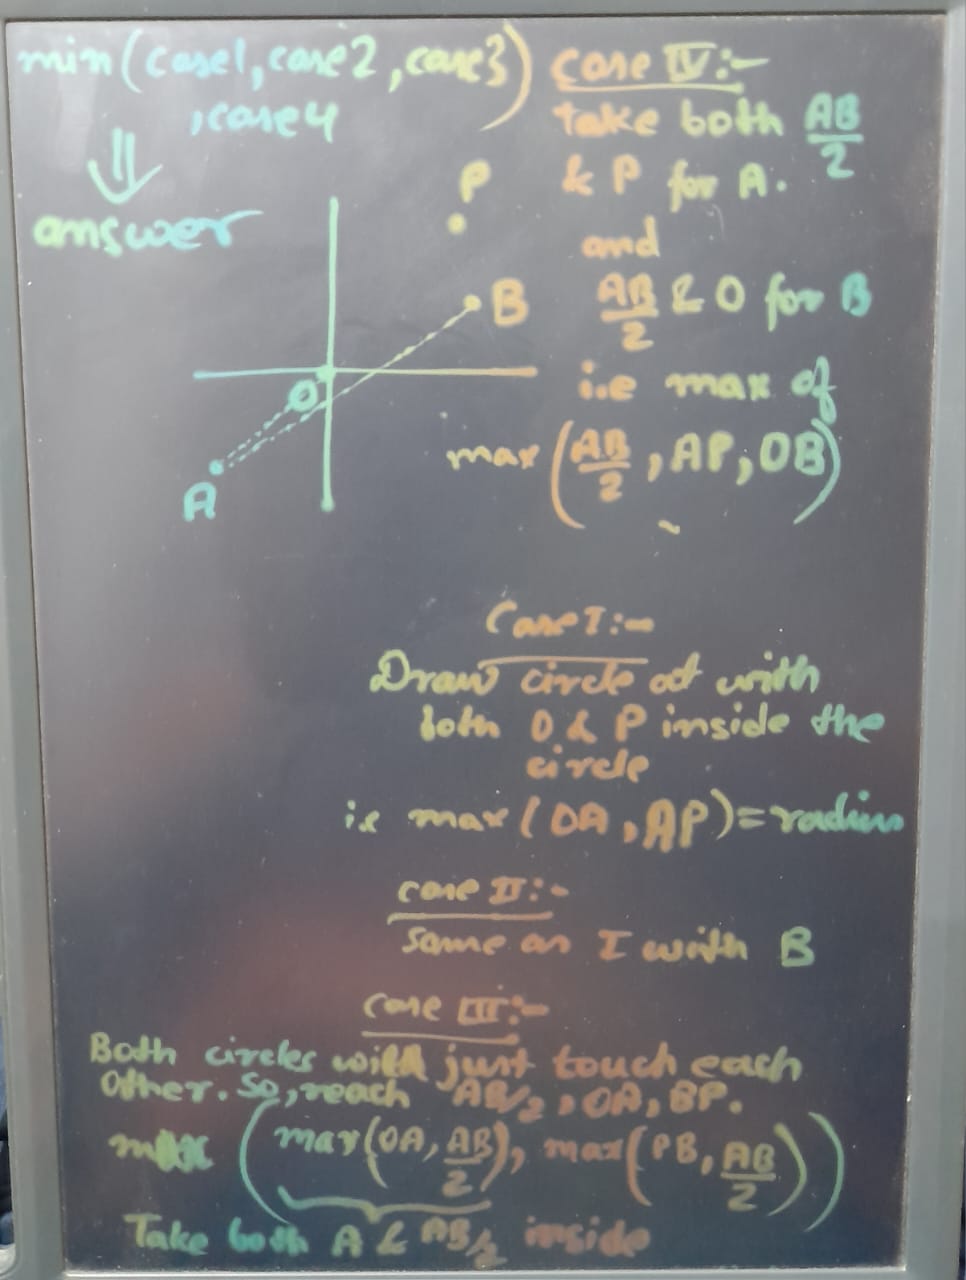 min(case1,case2,case3)
,case4
⇓
answer
P
B
O
A
Case IV:-
take both AB/2
& P for A.
and
AB/2 & O for B
i.e max of
max(AB/2, AP, OB)
Case I:-
Draw circle at with
both O & P inside the
circle
ie max(OA, AP)=radius
case II:-
Same as I with B
Case III:-
Both circles with just touch each
Other. So, reach AB/2, OA, BP.
max (max(OA, AB/2), max(PB, AB/2))
Take both A & AB/2 inside